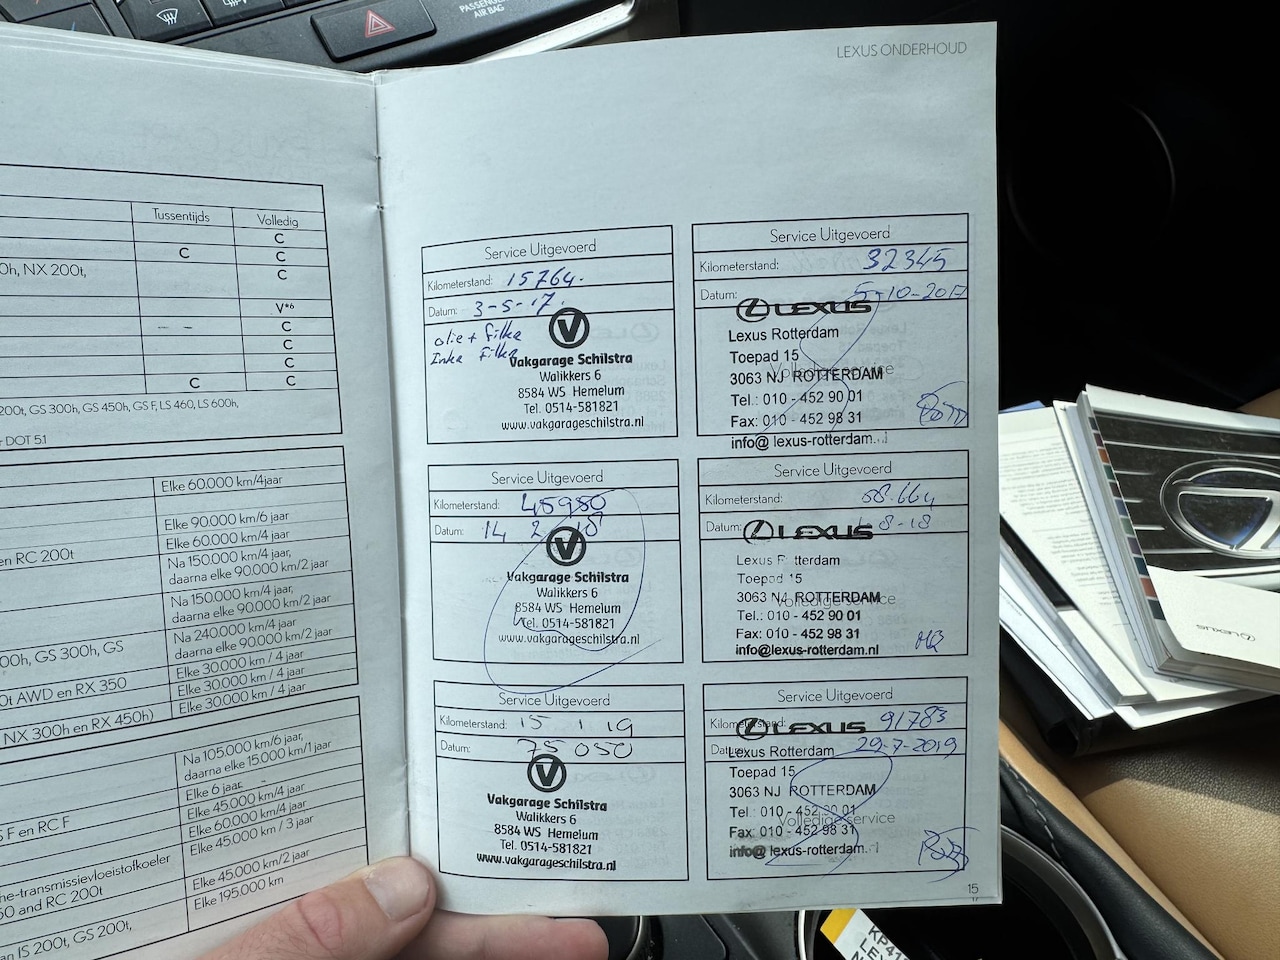 PASSENGER
AIR BAG
LEXUS ONDERHOUD
Tussentijds Volledig
C
C C
0h, NX 200t, C
V*6
C
C
C
C C
200t, GS 300h, GS 450h, GS F, LS 460, LS 600h,
r DOT 5.1
Elke 60.000 km/4jaar
Elke 90.000 km/6 jaar
en RC 200t Elke 60.000 km/4 jaar
Na 150.000 km/4 jaar,
daarna elke 90.000 km/2 jaar
Na 150.000 km/4 jaar,
daarna elke 90.000 km/2 jaar
00h, GS 300h, GS Na 240.000 km/4 jaar
daarna elke 90.000 km/2 jaar
0t AWD en RX 350 Elke 30.000 km / 4 jaar
Elke 30.000 km / 4 jaar
NX 300h en RX 450h) Elke 30.000 km / 4 jaar
Na 105.000 km/6 jaar,
daarna elke 15.000 km/1 jaar
Elke 6 jaar
S F en RC F Elke 45.000 km/4 jaar
Elke 60.000 km/4 jaar
he-transmissievloeistofkoeler Elke 45.000 km / 3 jaar
50 and RC 200t
Elke 45.000 km/2 jaar
an IS 200t, GS 200t, Elke 195.000 km
Service Uitgevoerd
Kilometerstand: 15764.
Datum: 3-5-17.
olie + filter
Vakgarage Schilstra
Walikkers 6
8584 WS Hemelum
Tel. 0514-581821
www.vakgarageschilstra.nl
Service Uitgevoerd
Kilometerstand: 32345
Datum: 5-10-2017
LEXUS
Lexus Rotterdam
Toepad 15
Volledige service
3063 NJ ROTTERDAM
Tel.: 010 - 452 90 01
Fax: 010 - 452 98 31
info@lexus-rotterdam.nl
Service Uitgevoerd
Kilometerstand: 45950
Datum: 14 2 18
Vakgarage Schilstra
Walikkers 6
8584 WS Hemelum
Tel. 0514-581821
www.vakgarageschilstra.nl
Service Uitgevoerd
Kilometerstand:
Datum: 8-18
LEXUS
Lexus Rotterdam
Toepad 15
3063 NJ ROTTERDAM
Volledige service
Tel.: 010 - 452 90 01
Fax: 010 - 452 98 31
info@lexus-rotterdam.nl
Service Uitgevoerd
Kilometerstand: 15 1 19
Datum: 75 050
Vakgarage Schilstra
Walikkers 6
8584 WS Hemelum
Tel. 0514-581821
www.vakgarageschilstra.nl
Service Uitgevoerd
Kilometerstand: 91783
LEXUS
Datum: 29-7-2019
Lexus Rotterdam
Toepad 15
3063 NJ ROTTERDAM
Tel.: 010 - 452 90 01
Volledige service
Fax: 010 - 452 98 31
info@lexus-rotterdam.nl
15
LEXUS
KP41